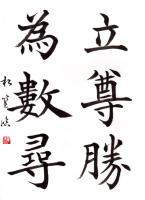 立尊勝
為數尋